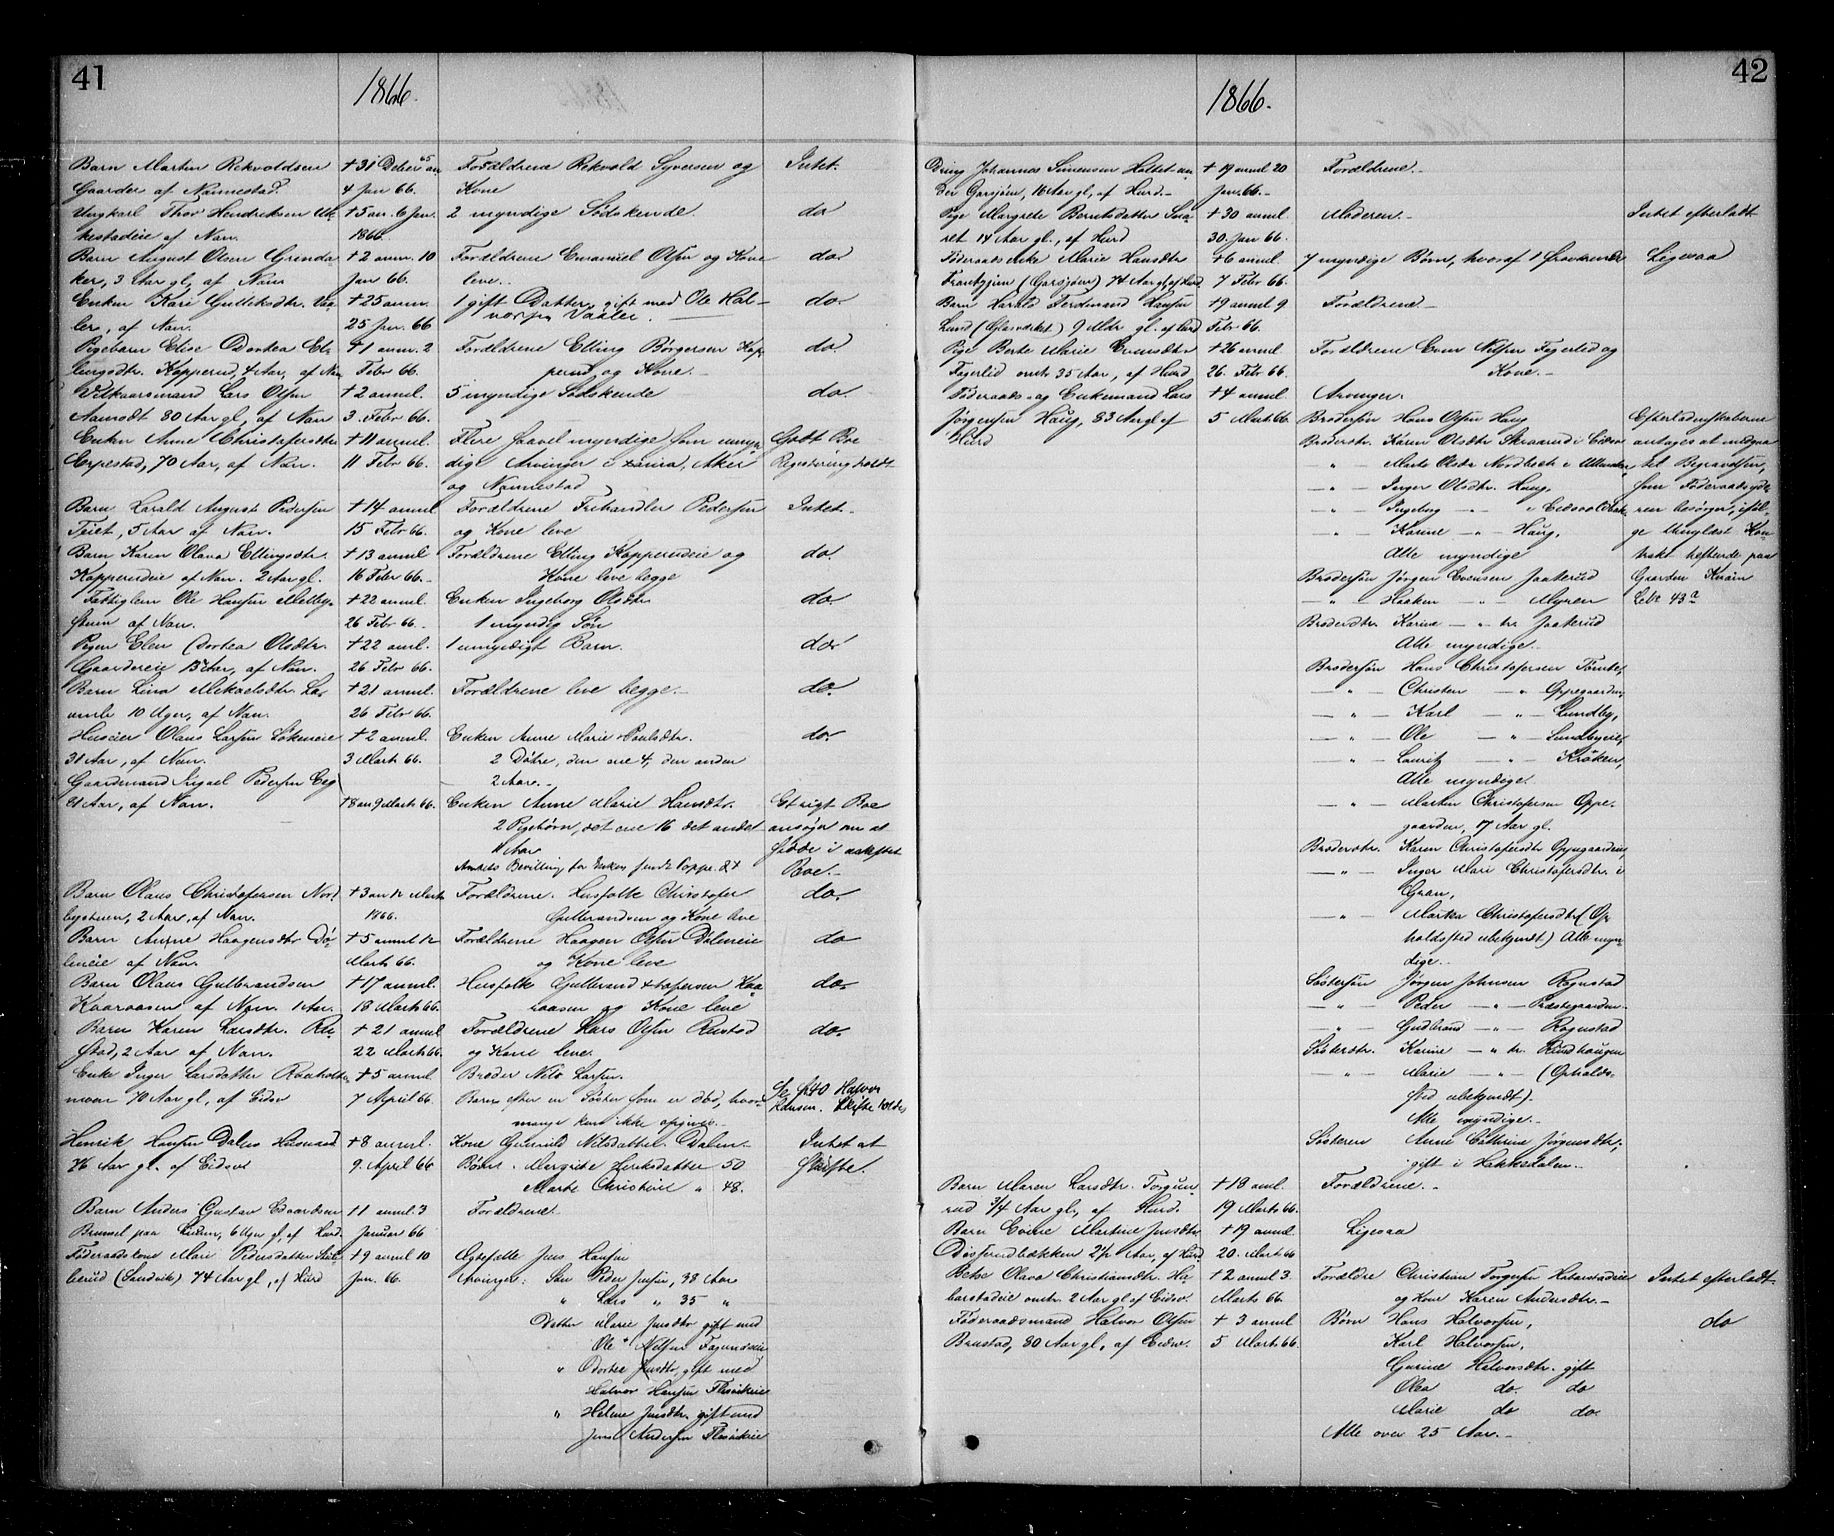 41
1866.
Barn Marten Rekvoldsen
Gaarder af Nannestad.
†31 Debr 65 an
4 Jan 66.
Forældrene Rekvold Syversen og
Kone
Intet.
Ungkarl Thor Hendriksen
kestadeie af Nan.
†5 an. 6 Jan.
1866.
2 myndige Sødskende.
do
Barn August Olsen Grinda
ker, 3 Aar gl, af Nan
†2 anm. 10
Jan 66.
Forældrene Emanuel Olsen og Kone
leve.
do.
Enken Kari Gulleksdtr. Va
ler, af Nan.
†25 anm.
25 Jan. 66
1 gift Datter, gift med Ole Hal-
vorsen Vaaler.
do.
Pigebarn Elise Dortea El-
lingsdtr. Kopperud, 4 Aar, af Nan
†1 anm. 2
Febr 66.
Forældrene Elling Börgersen Kop
perud og Kone.
do.
Vilkaarsmand Lars Olsen
Aamodt 80 Aar gl, af Nan
†2 anmel.
3. Febr 66.
5 myndige Sødskende
do.
Enken Anne Christofersdtr
Erpestad, 70 Aar, af Nan.
†11 anmel.
11 Febr 66.
Flere saavel myndige som umyn
dige Arvinger i Xania, Aker
og Nannestad
Godt Boe
Registrering holdt
Barn Harald August Pedersen
Teiet, 5 Aar af Nan.
†14 anmel
15 Febr 66.
Forældrene Frihandler Pedersen
og Kone leve
Intet.
Barn Karen Olava Ellingsdtr.
Kopperudeie af Nan. 2 Aar gl.
†13 anmel.
16 Febr 66.
Forældrene Elling Kopperudeie og
Kone leve begge
do.
Fattiglem Ole Hansen Melby-
steen af Nan.
†22 anmel.
26 Febr 66.
Enken Ingeborg Olsdtr
1 myndig Søn
do.
Pigen Elen Dortea Olsdtr.
Gaardereie Aar, af Nan.
†22 anml.
26 Febr 66.
1 umyndigt Barn.
do.
Barn Lina Mikaelsdtr.
10 Uger, af Nan.
†21 anml.
26 Febr 66.
Forældrene leve begge.
do.
Huseier Olaus Larsen Løkeneie
31 Aar, af Nan.
†2 anmel.
3 Marts 66.
Enken Anne Marie Paulsdtr.
2 Døtre, den ene 4, den anden
2 Aar.
do.
Gaardmand Pedersen
Aar, af Nan.
†8 an 9 Marts 66.
Enken Anne Marie Hansdtr.
2 Pigebørn, det ene 16 det andet
11 Aar
Amtets Bevilling for Enken
Et rigt Boe
ansøger om at
sidde i uskiftet
Boe.
Barn Olaus Christofersen Nord
bysteen, 2 Aar, af Nan.
†3 an 12 Marts
1866.
Forældrene. Husfolk Christofer
Gulbrandsen og Kone leve
do.
Barn Anne Haagensdtr Dø-
leneie af Nan.
†5 anmel 12
Marts 66.
Forældrene Haagen Olsen Døleneie
og Kone leve
do
Barn Olaus Gulbrandsen
Kaaraasen af Nan. 1 Aar.
†17 anmel.
18 Marts 66.
Husfolk Gulbrand Xtofersen Kaa
raasen og Kone leve
do.
Barn Karen Larsdtr.
stad, 2 Aar af Nan.
†21 anmel
22 Marts 66.
Forældrene Lars Olsen
og Kone leve.
do.
Enke Inger Larsdatter
moen 70 Aar gl, af Eidsv
†5 anmel
7 April 66.
Broder Nils Larsen.
Barn efter en Søster som er død, hvor
mange kan ikke opgives.
Se p 40 Halvor
Hansen. Skifte holdes
Henrik Hansen Dalen Husmand
76 Aar gl. af Eidsv
†8 anmel.
9. April 66
Kone Gunnild Nilsdatter Dalen.
Børn. Margrete Henriksdatter 50
Marte Christine " 48.
Intet at
skifte.
Barn Anders Gustav Edvardsen
Brunsel paa 6 Uger gl, af Hurd.
†1 anml. 3
Januar 66
Forældrene.
Føderaadskone Mari Pedersdatter
berud (Sandvik) 74 Aar gl, af Hurd
†9 anml 10
Jan. 66.
Ægtefælle Jens Hansen
Arvinger: Søn Peder Jensen, 38 Aar
" Lars " 35 "
Datter Marie Jensdtr gift med
Ole Nilsen
" Dortea Jensdtr, gift med
Halvor Hansen
" Helene Jensdtr. gift med
Jens Andersen
42
1866.
Dreng Johannes Simensen Holtet un
der Garsjøen, 16 Aar gl, af Hurd.
†19 anml 20
Jan. 66.
Forældrene.
Pige Margrete Berntsdatter
ret 14 Aar gl., af Hurd
†30 anml.
30. Jan 66.
Moderen.
Intet efterladt
Føderaads Enke Marie Hansdtr
(Garsjøen) 74 Aar gl, af Hurd
†6 anml.
7 Febr 66.
7 myndige Børn, hvoraf 1 fraværende
Ligesaa
Barn Harald Ferdinand Hansen
Lund (Glasværket) 9 Mdr gl. af Hurd
†9 anml 9
Febr 66.
Forældrene
Pige Berte Marie Evensdtr
Fagerlid omtr 35 Aar, af Hurd
†26 anml
26. Febr 66.
Forældrene Even Nilsen Fagerlid og
Kone.
Føderaads- og Enkemand Lars
Jørgensen Haug, 83 Aar gl af
Hurd
†4 anml
5 Marts 66.
Arvinger.
Brodersøn Hans Olsen Haug
Broderdtr. Karen Olsdtr i Eidsv
— " — Marte Olsdtr Nordbæk i Ullensaker
— " — Inger Olsdtr. Haug,
— " — Ingeborg — " — Eidsvoldbak
— " — Karine — " — Haug,
Alle myndige
Brodersøn Jørgen Evensen Jaaterud
— " — Haaken — " — Myren
Broderdtr. Karine — " — tr. Jaaterud
Alle myndige.
Brodersøn Hans Christofersen Tømte,
— " — Christen — " — Oppegaarden,
— " — Karl — " — Lundby,
— " — Ole — " — Lundbyeie,
— " — Lauritz — " — Kroken,
Alle myndige.
— " — Marten Christofersen Oppe-
gaarden, 17 Aar gl.
Broderdtr. Karen Christofersdtr Oppegaarden,
— " — Inger Mari Christofersdtr. i
Gran,
— " — Marthe Christofersdtr (Op
holdssted ubekjendt) Alle myn
dige.
Søstersøn Jørgen Johnsen Rognstad
— " — Peder — " — Præstegaarden.
— " — Gudbrand — " — Rognstad
Søsterdtr. Karine — " — tr. Rudshaugen
— " — Marie — " — (Opholds-
sted ubekjendt).
Alle myndige.
Søsteren Anne Cathrine Jørgensdtr,
gift i Hakkedalen.
Efterladenskaberne
antages at medgaa
til Begravelsen,
som Føderaadsyde
ren besørger, iføl-
ge thinglæst Kon
trakt heftende paa
Gaarden
Lbr 43a
Barn Maren Larsdtr. Torgun
rud 3/4 Aar gl, af Hurd.
†18 anl.
19 Marts 66.
Forældrene.
Barn Martine Jensdtr
2½ Aar, af Hurd
†19 anml.
20. Marts 66
Ligesaa
Betse Olava Christiansdtr. Ha-
barstadeie omtr. 2 Aar gl af Eidsv.
†2 anml 3.
Marts 66.
Forældre Christian Torgersen Habarstadeie
og Kone Karen Andersdtr.
Intet efterladt
Føderaadsmand Halvor Olsen
Brustad, 80 Aar gl, af Eidsv.
†3 anml
5 Marts 66.
Børn Hans Halvorsen,
Karl Halvorsen,
Gurine Halvorsdtr. gift
Olea do. do
Marie do do.
Alle over 25 Aar.
do